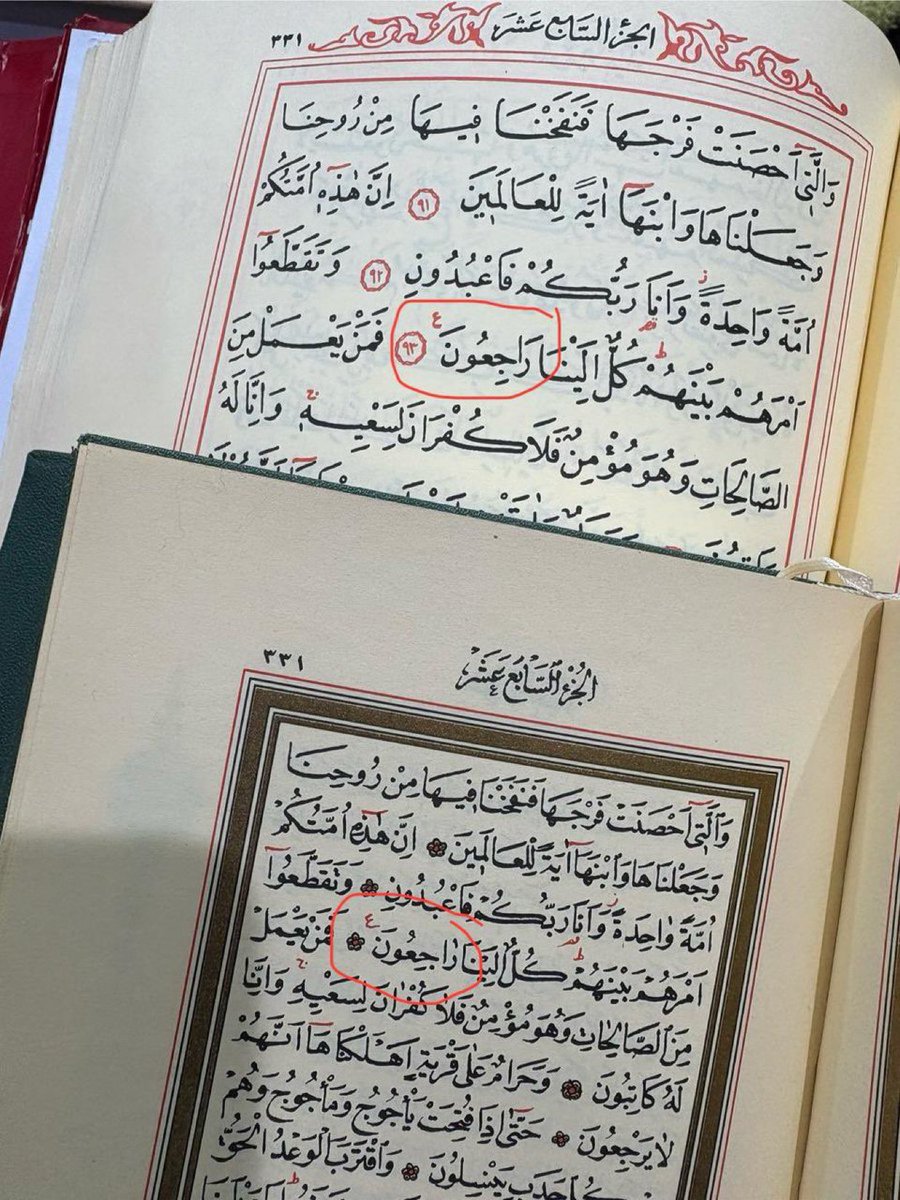 الجزء السابع عشر
٣٣١
وَالَّتٖٓي اَحْصَنَتْ فَرْجَهَا فَنَفَخْنَا فٖيهَا مِنْ رُوحِنَا
وَجَعَلْنَاهَا وَابْنَهَٓا اٰيَةً لِلْعَالَمٖينَ ٩١ اِنَّ هٰذِهٖٓ اُمَّتُكُمْ
اُمَّةً وَاحِدَةً وَاَنَا رَبُّكُمْ فَاعْبُدُونِ ٩٢ وَتَقَطَّعُٓوا
اَمْرَهُمْ بَيْنَهُمْ كُلٌّ اِلَيْنَا رَاجِعُونَ ع ٩٣ فَمَنْ يَعْمَلْ مِنَ
الصَّالِحَاتِ وَهُوَ مُؤْمِنٌ فَلَا كُفْرَانَ لِسَعْيِهٖ وَاِنَّا لَهُ
الجزء السابع عشر
٣٣١
وَالَّتٖٓي اَحْصَنَتْ فَرْجَهَا فَنَفَخْنَا فٖيهَا مِنْ رُوحِنَا
وَجَعَلْنَاهَا وَابْنَهَٓا اٰيَةً لِلْعَالَمٖينَ اِنَّ هٰذِهٖٓ اُمَّتُكُمْ
اُمَّةً وٰاحِدَةً وَاَنَا رَبُّكُمْ فَاعْبُدُونِ وَتَقَطَّعُٓوا
اَمْرَهُمْ بَيْنَهُمْ كُلٌّ اِلَيْنَا رٰاجِعُونَ ع فَمَنْ يَعْمَلْ
مِنَ الصَّالِحَاتِ وَهُوَ مُؤْمِنٌ فَلَا كُفْرٰانَ لِسَعْيِهٖ وَاِنَّا
لَهُ كَاتِبُونَ وَحَرَامٌ عَلٰى قَرْيَةٍ اَهْلَكْنَاهَٓا اَنَّهُمْ
لَا يَرْجِعُونَ حَتّٰٓى اِذَا فُتِحَتْ يَأْجُوجُ وَمَأْجُوجُ وَهُمْ
مِنْ كُلِّ حَدَبٍ يَنْسِلُونَ وَاقْتَرَبَ الْوَعْدُ الْحَقُّ